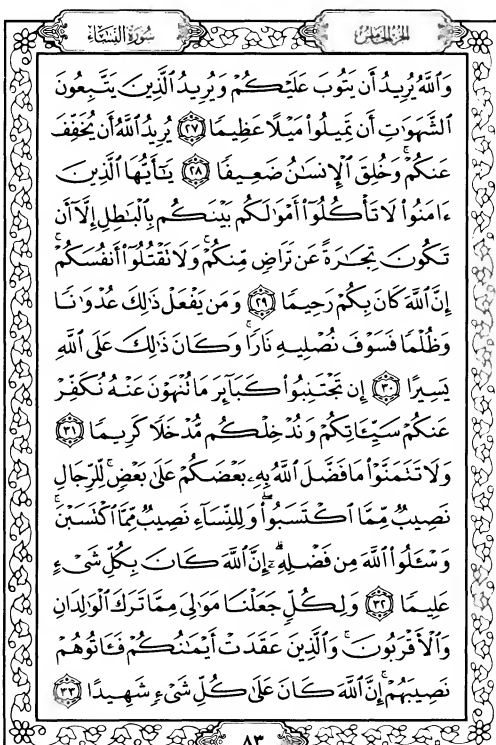 سُورَةُ النِّسَاء الجُزْءُ الخَامِسُ
وَٱللَّهُ يُرِيدُ أَن يَتُوبَ عَلَيْكُمْ وَيُرِيدُ ٱلَّذِينَ يَتَّبِعُونَ
ٱلشَّهَوَٰتِ أَن تَمِيلُوا۟ مَيْلًا عَظِيمًا ٢٧ يُرِيدُ ٱللَّهُ أَن يُخَفِّفَ
عَنكُمْ ۚ وَخُلِقَ ٱلْإِنسَٰنُ ضَعِيفًا ٢٨ يَٰٓأَيُّهَا ٱلَّذِينَ
ءَامَنُوا۟ لَا تَأْكُلُوٓا۟ أَمْوَٰلَكُم بَيْنَكُم بِٱلْبَٰطِلِ إِلَّآ أَن
تَكُونَ تِجَٰرَةً عَن تَرَاضٍ مِّنكُمْ ۚ وَلَا تَقْتُلُوٓا۟ أَنفُسَكُمْ ۚ
إِنَّ ٱللَّهَ كَانَ بِكُمْ رَحِيمًا ٢٩ وَمَن يَفْعَلْ ذَٰلِكَ عُدْوَٰنًا
وَظُلْمًا فَسَوْفَ نُصْلِيهِ نَارًا ۚ وَكَانَ ذَٰلِكَ عَلَى ٱللَّهِ
يَسِيرًا ٣٠ إِن تَجْتَنِبُوا۟ كَبَآئِرَ مَا تُنْهَوْنَ عَنْهُ نُكَفِّرْ
عَنكُمْ سَيِّـَٔاتِكُمْ وَنُدْخِلْكُم مُّدْخَلًا كَرِيمًا ٣١
وَلَا تَتَمَنَّوْا۟ مَا فَضَّلَ ٱللَّهُ بِهِۦ بَعْضَكُمْ عَلَىٰ بَعْضٍ ۚ لِّلرِّجَالِ
نَصِيبٌ مِّمَّا ٱكْتَسَبُوا۟ ۖ وَلِلنِّسَآءِ نَصِيبٌ مِّمَّا ٱكْتَسَبْنَ ۚ
وَسْـَٔلُوا۟ ٱللَّهَ مِن فَضْلِهِۦٓ ۗ إِنَّ ٱللَّهَ كَانَ بِكُلِّ شَىْءٍ
عَلِيمًا ٣٢ وَلِكُلٍّ جَعَلْنَا مَوَٰلِىَ مِمَّا تَرَكَ ٱلْوَٰلِدَانِ
وَٱلْأَقْرَبُونَ ۚ وَٱلَّذِينَ عَقَدَتْ أَيْمَٰنُكُمْ فَـَٔاتُوهُمْ
نَصِيبَهُمْ ۚ إِنَّ ٱللَّهَ كَانَ عَلَىٰ كُلِّ شَىْءٍ شَهِيدًا ٣٣
٨٣